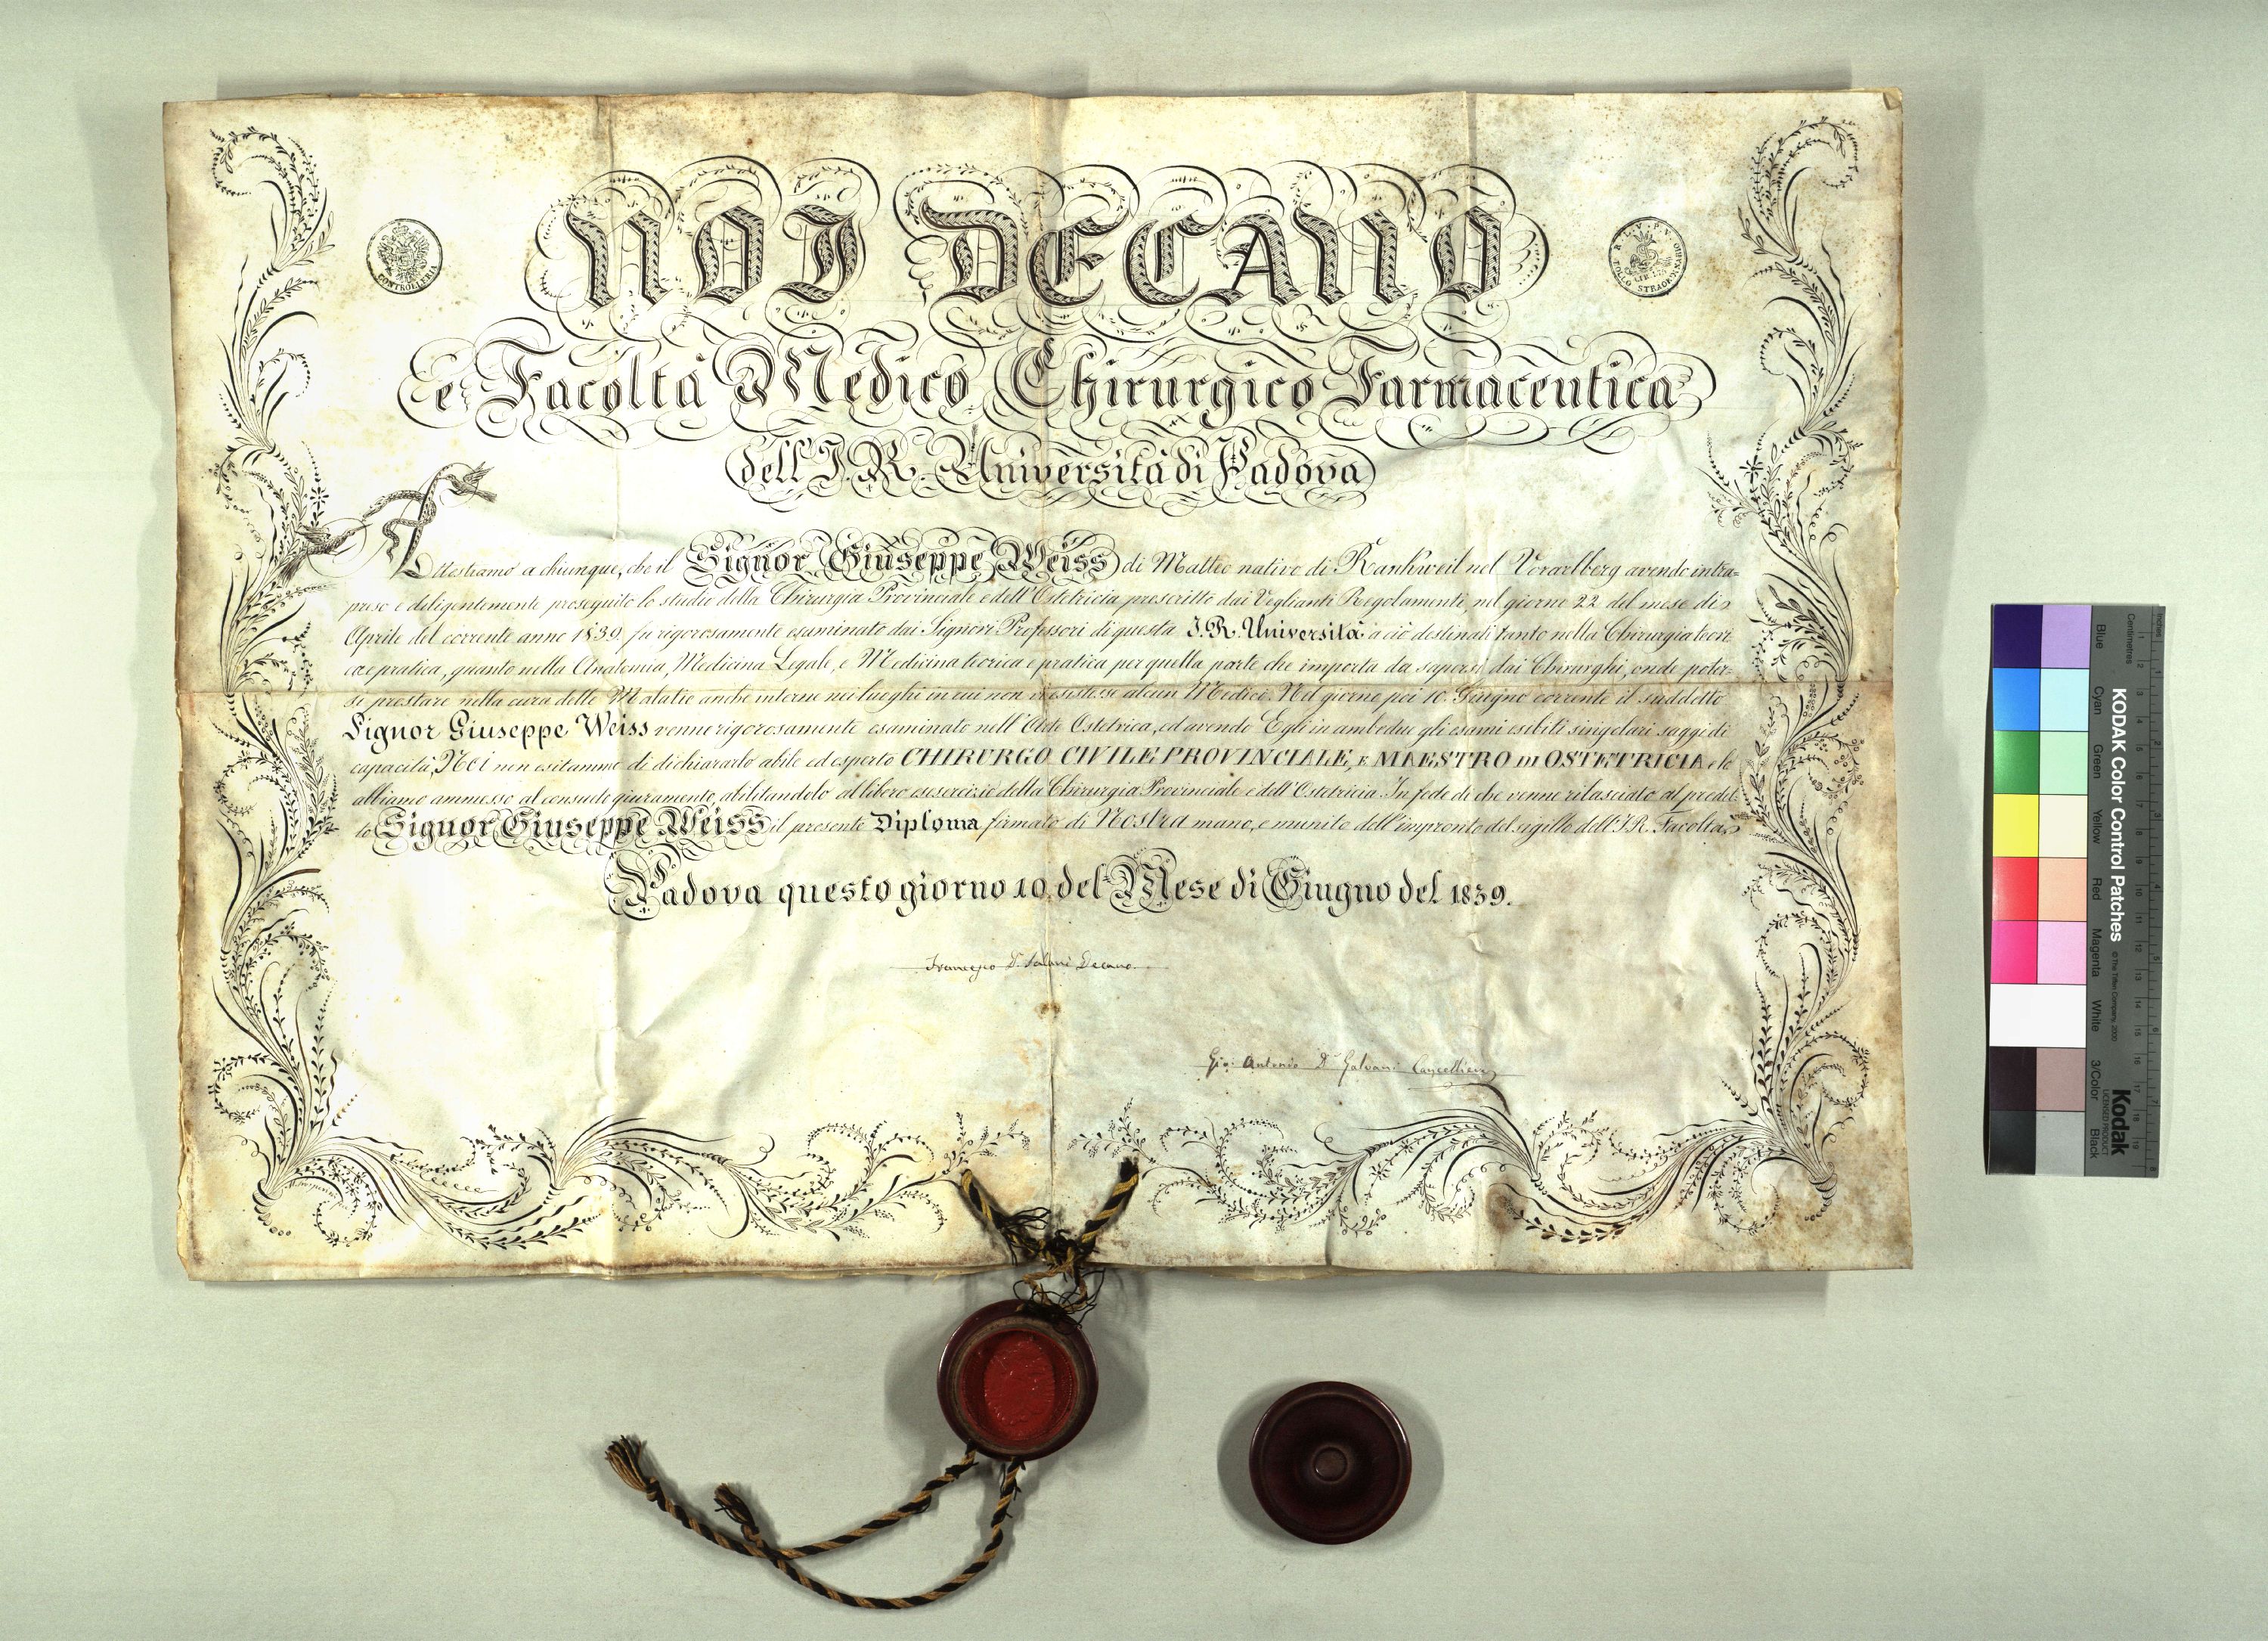 NOI DECANO
e Facoltà Medico Chirurgico Farmaceutica
dell'I. R. Università di Padova
CONTROLLERIA
Attestiamo a chiunque, che il Signor Giuseppe Weiss di Matteo nativo di Rankweil nel Vorarlberg avendo intra-
preso e diligentemente proseguito lo studio della Chirurgia Provinciale e dell'Ostetricia prescritto dai Veglianti Regolamenti, nel giorno 22 del mese di
Aprile del corrente anno 1839. fu rigorosamente esaminato dai Signori Professori di questa I. R. Università a ciò destinati tanto nella Chirurgia teori
ca e pratica, quanto nella Anatomia, Medicina Legale, e Medicina teorica e pratica per quella parte che importa da sapersi dai Chirurghi, onde poter-
si prestare nella cura delle Malatie anche interne nei luoghi in cui non vi esistesse alcun Medico. Nel giorno poi 10. Giugno corrente il suddetto
Signor Giuseppe Weiss venne rigorosamente esaminato nell'Arte Ostetrica, ed avendo Egli in ambedue gli esami esibiti singolari saggi di
capacità, Noi non esitammo di dichiararlo abile ed esperto CHIRURGO CIVILE PROVINCIALE, E MAESTRO DI OSTETRICIA e lo
abbiamo ammesso al consueto giuramento, abilitandolo al libero esercizio della Chirurgia Provinciale e dell'Ostetricia. In fede di che venne rilasciato al predet-
to Signor Giuseppe Weiss il presente Diploma firmato di Nostra mano, e munito dell'impronto del sigillo dell'I. R. Facoltà
Padova questo giorno 10. del Mese di Giugno del 1839.
Francesco Dr. Decano
Gio: Antonio Dr. Galvani Cancelliere
KODAK Color Control Patches
© The Tiffen Company, 2000
Kodak
LICENSED PRODUCT
Blue Cyan Green Yellow Red Magenta White 3/Color Black
Centimetres
Inches